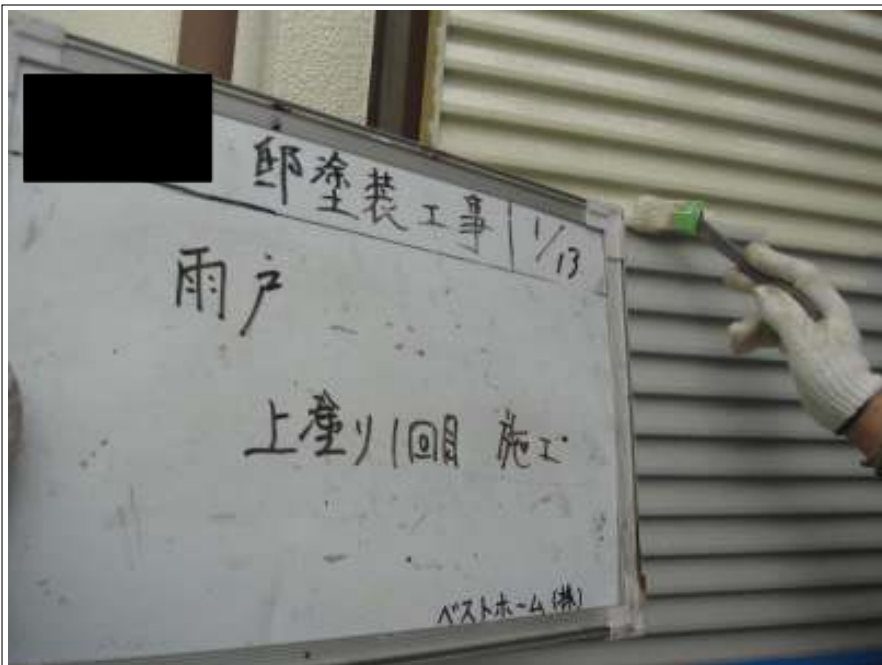 邸塗装工事 1/13
雨戸
上塗り1回目 施工
ベストホーム(株)